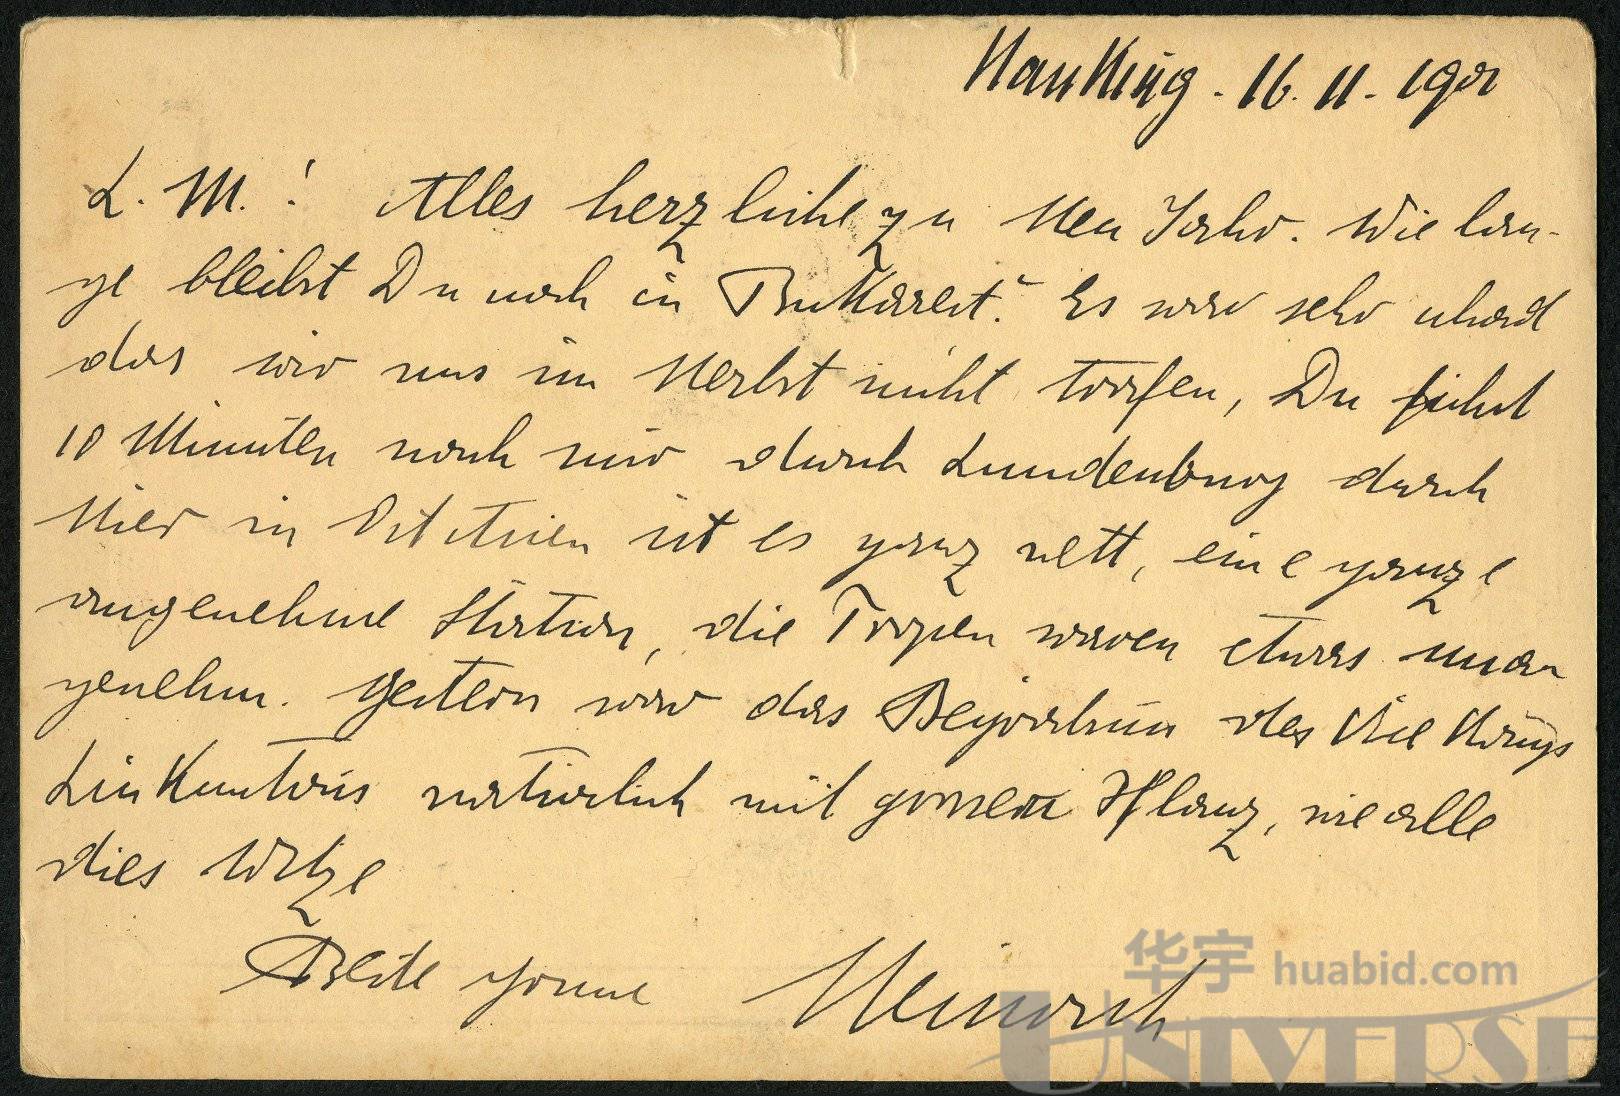 Nanking. 16. 11. 1902
L. M.! Alles herzliche zu Neu Jahr. Wie lan-
ge bleibst Du noch in Bukarest? Es war sehr schad
das wir uns im Herbst nicht trafen, Du fuhrst
10 Minuten nach mir durch Lundenburg durch
Hier in Ostasien ist es ganz nett, eine ganze
angenehme Station, die Tropen waren etwas unan
genehm. Gestern war das Begräbnis des Vice Königs
Liu Kuntwis natürlich mit grossem Pflanz, wie alle
dies Witze
Beste Grüsse Heinrich
华宇 huabid.com
UNIVERSE